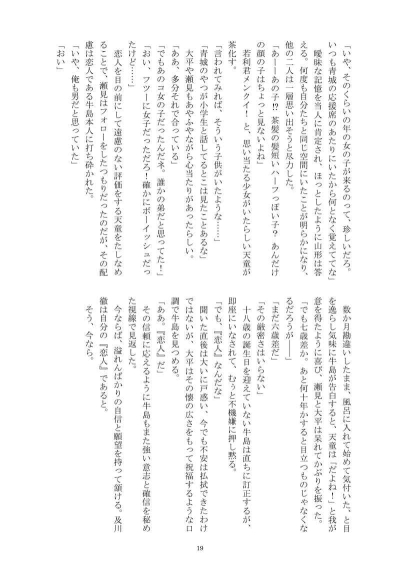 「いや、そのくらいの年の女の子が来るのって、珍しいだろ。
いつも青城の応援席のあたりにいたから何となく覚えててな」
曖昧な記憶を当人に肯定され、ほっとしたように山形は答
える。何度も自分たちと同じ空間にいたことが明らかになり、
他の二人は一層思い出そうと尽力した。
「あーーあの子!? 茶髪の髪短いハーフっぽい子？ あんだけ
の顔の子はちょっと見ないよね」
若利君メンクイ！ と、思い当たる少女がいたらしい天童が
茶化す。
「言われてみれば、そういう子供がいたような……」
「青城のやつが小学生と話してるとこは見たことあるな」
大平や瀬見もあやふやながら心当たりがあったらしい。
「ああ、多分それで合っている」
「でもあのコ女の子だったんだネ。誰かの弟だと思ってた！」
「おい、フツーに女子だっただろ！確かにボーイッシュだっ
たけど……」
恋人を目の前にして遠慮のない評価をする天童をたしなめ
ることで、瀬見はフォローをしたつもりだったのだが、その配
慮は恋人である牛島本人に打ち砕かれた。
「いや、俺も男だと思っていた」
「おい」
数か月勘違いしたまま、風呂に入れて始めて気付いた、と目
を逸らし気味に牛島が告白すると、天童は「だよね！」と我が
意を得たように喜び、瀬見と大平は呆れてかぶりを振った。
「でも七歳差か。あと何十年かすると目立つものじゃなくな
るだろうが――」
「まだ六歳差だ」
「その厳密さはいらない」
十八歳の誕生日を迎えていない牛島は直ちに訂正するが、
即座にいなされて、むぅと不機嫌に押し黙る。
「でも、『恋人』なんだな」
聞いた直後は大いに戸惑い、今でも不安は払拭できたわけ
ではないが、大平はその懐の広さをもって祝福するような口
調で牛島を見つめる。
「ああ。『恋人』だ」
その信頼に応えるように牛島もまた強い意志と確信を秘め
た視線で見返した。
今ならば、溢れんばかりの自信と願望を持って頷ける。及川
徹は自分の『恋人』であると。
そう、今なら。
19